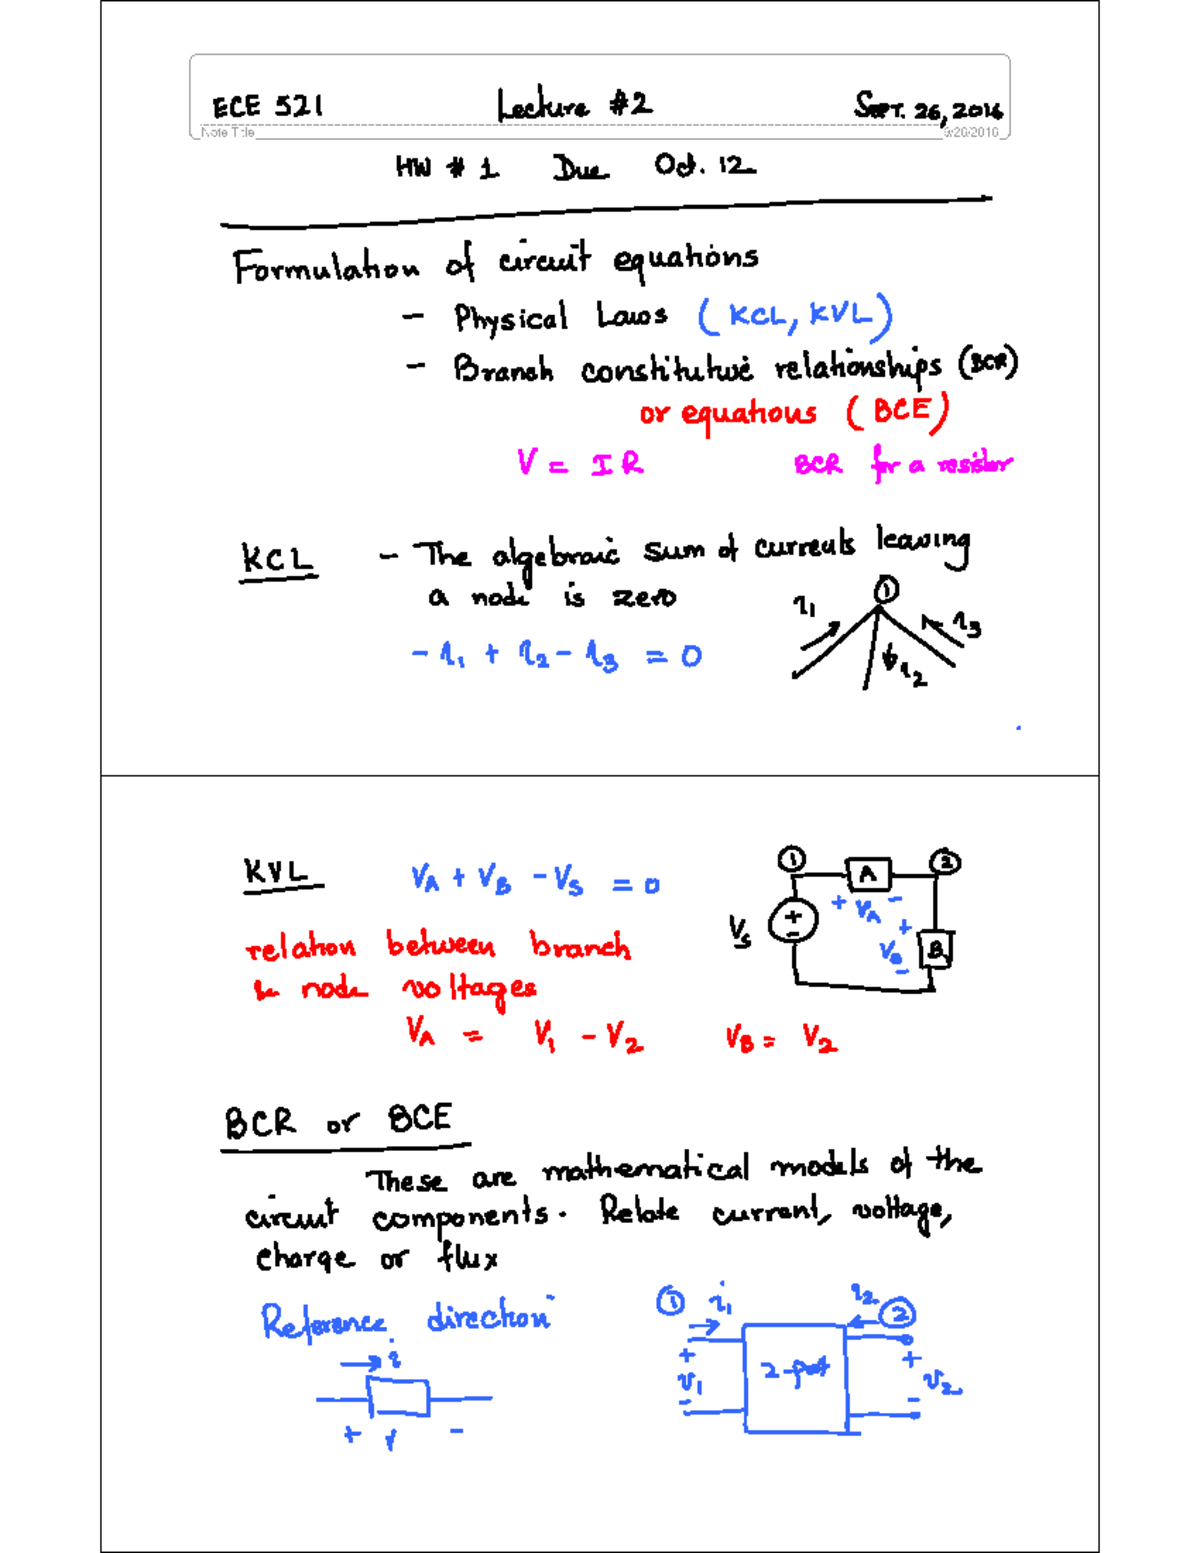 ECE 521 Lecture #2 Sept. 26, 2016
Note Title 9/26/2016
HW # 1 Due Oct. 12
Formulation of circuit equations
- Physical Laws (KCL, KVL)
- Branch constitutive relationships (BCR)
or equations (BCE)
V = IR BCR for a resistor
KCL - The algebraic sum of currents leaving
a node is zero
1
i1
i3
i2
- i1 + i2 - i3 = 0
KVL VA + VB - VS = 0
1 2
A
+ VA -
VS
+
-
+
VB
-
B
relation between branch
& node voltages
VA = V1 - V2 VB = V2
BCR or BCE
These are mathematical models of the
circuit components. Relate current, voltage,
charge or flux
Reference direction
i
+ v -
1 i1 i2 2
+ +
v1 2-port v2
- -